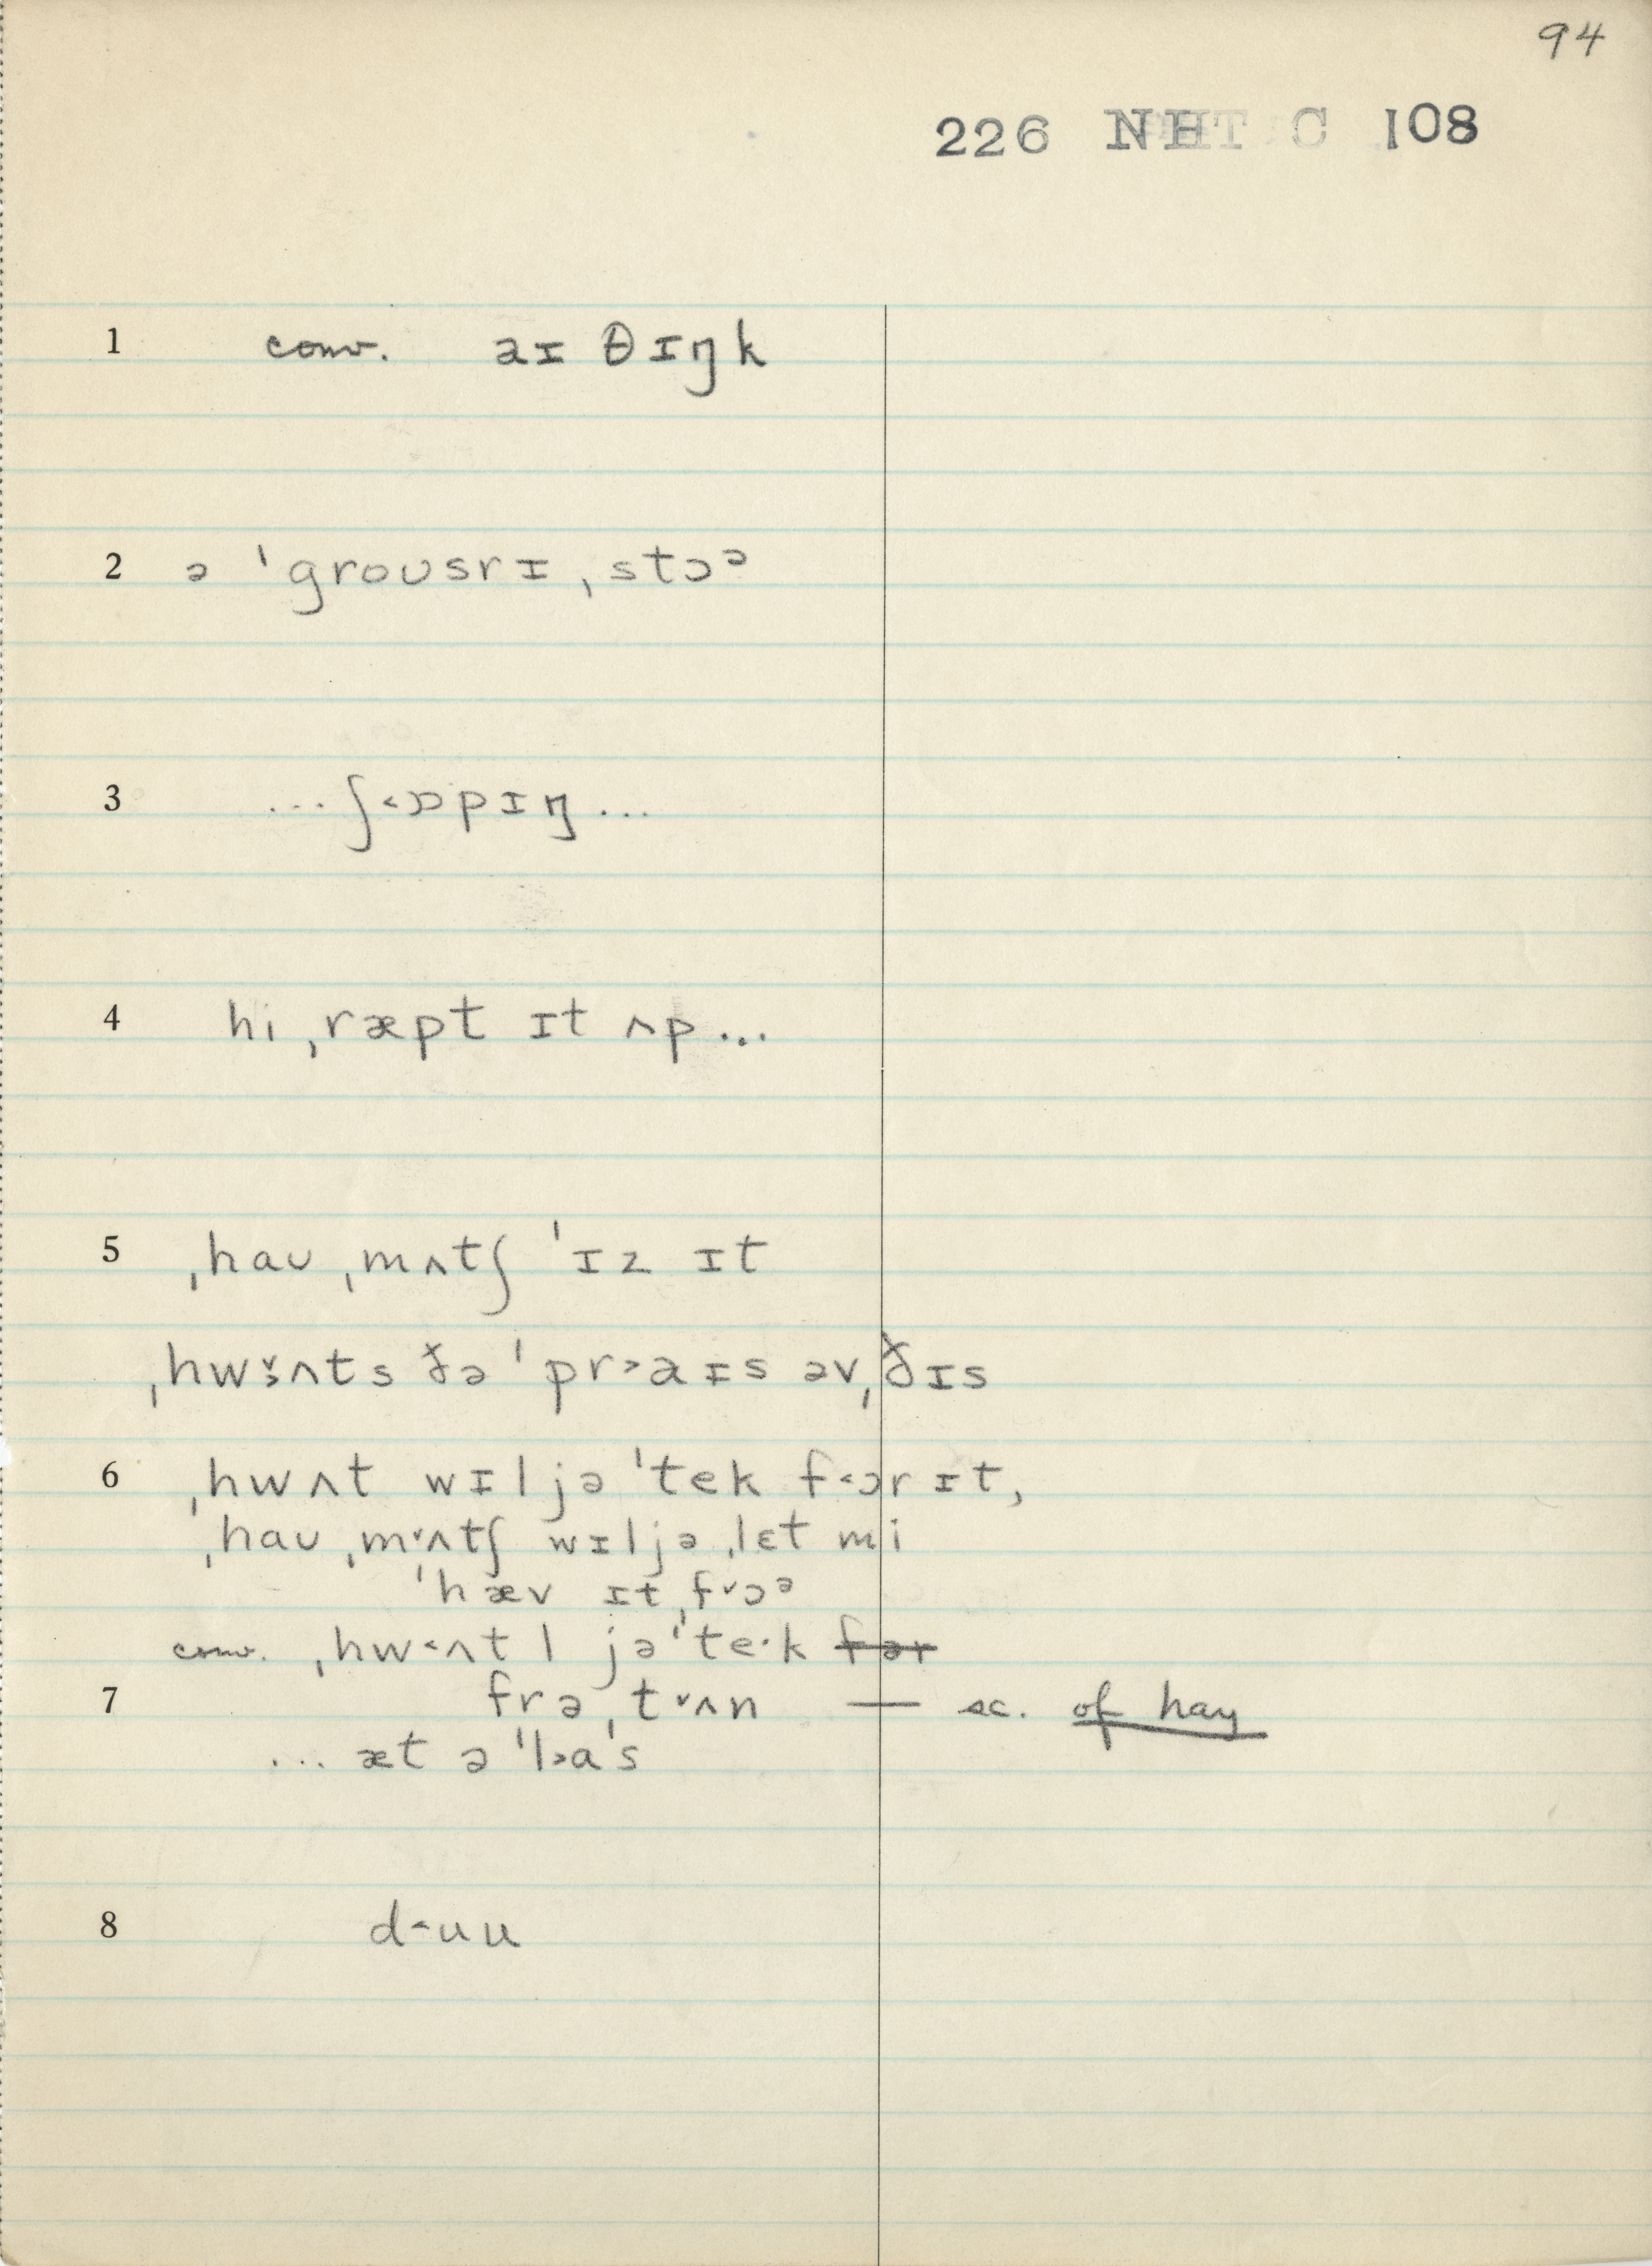 94
226 NHT C 108
1 conv. aɪ θɪŋk
2 ə ˈgroʊsrɪ ˌstɔᵊ
3 ...ʃ˂ɒpɪŋ...
4 hi ˌræpt ɪt ʌp...
5 ˌhaʊ ˌmʌtʃ ˈɪz ɪt
ðə ˈpr˃aɪs əv ˌðɪs
6 ˌhwʌt wɪl jə ˈtek f˂ɔr ɪt,
ˌhaʊ ˌm˅ʌtʃ wɪl jə ˌlɛt mi
ˈhæv ɪt ˌf˅ɔᵊ
conv. ˌhw˂ʌt l jə ˈte·k fər
7 frə ˌt˅ʌn — sc. of hay
... æt ə ˈl˃aˈs
8 d˂uu